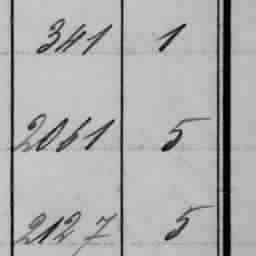 341 1
2061 5
2127 5